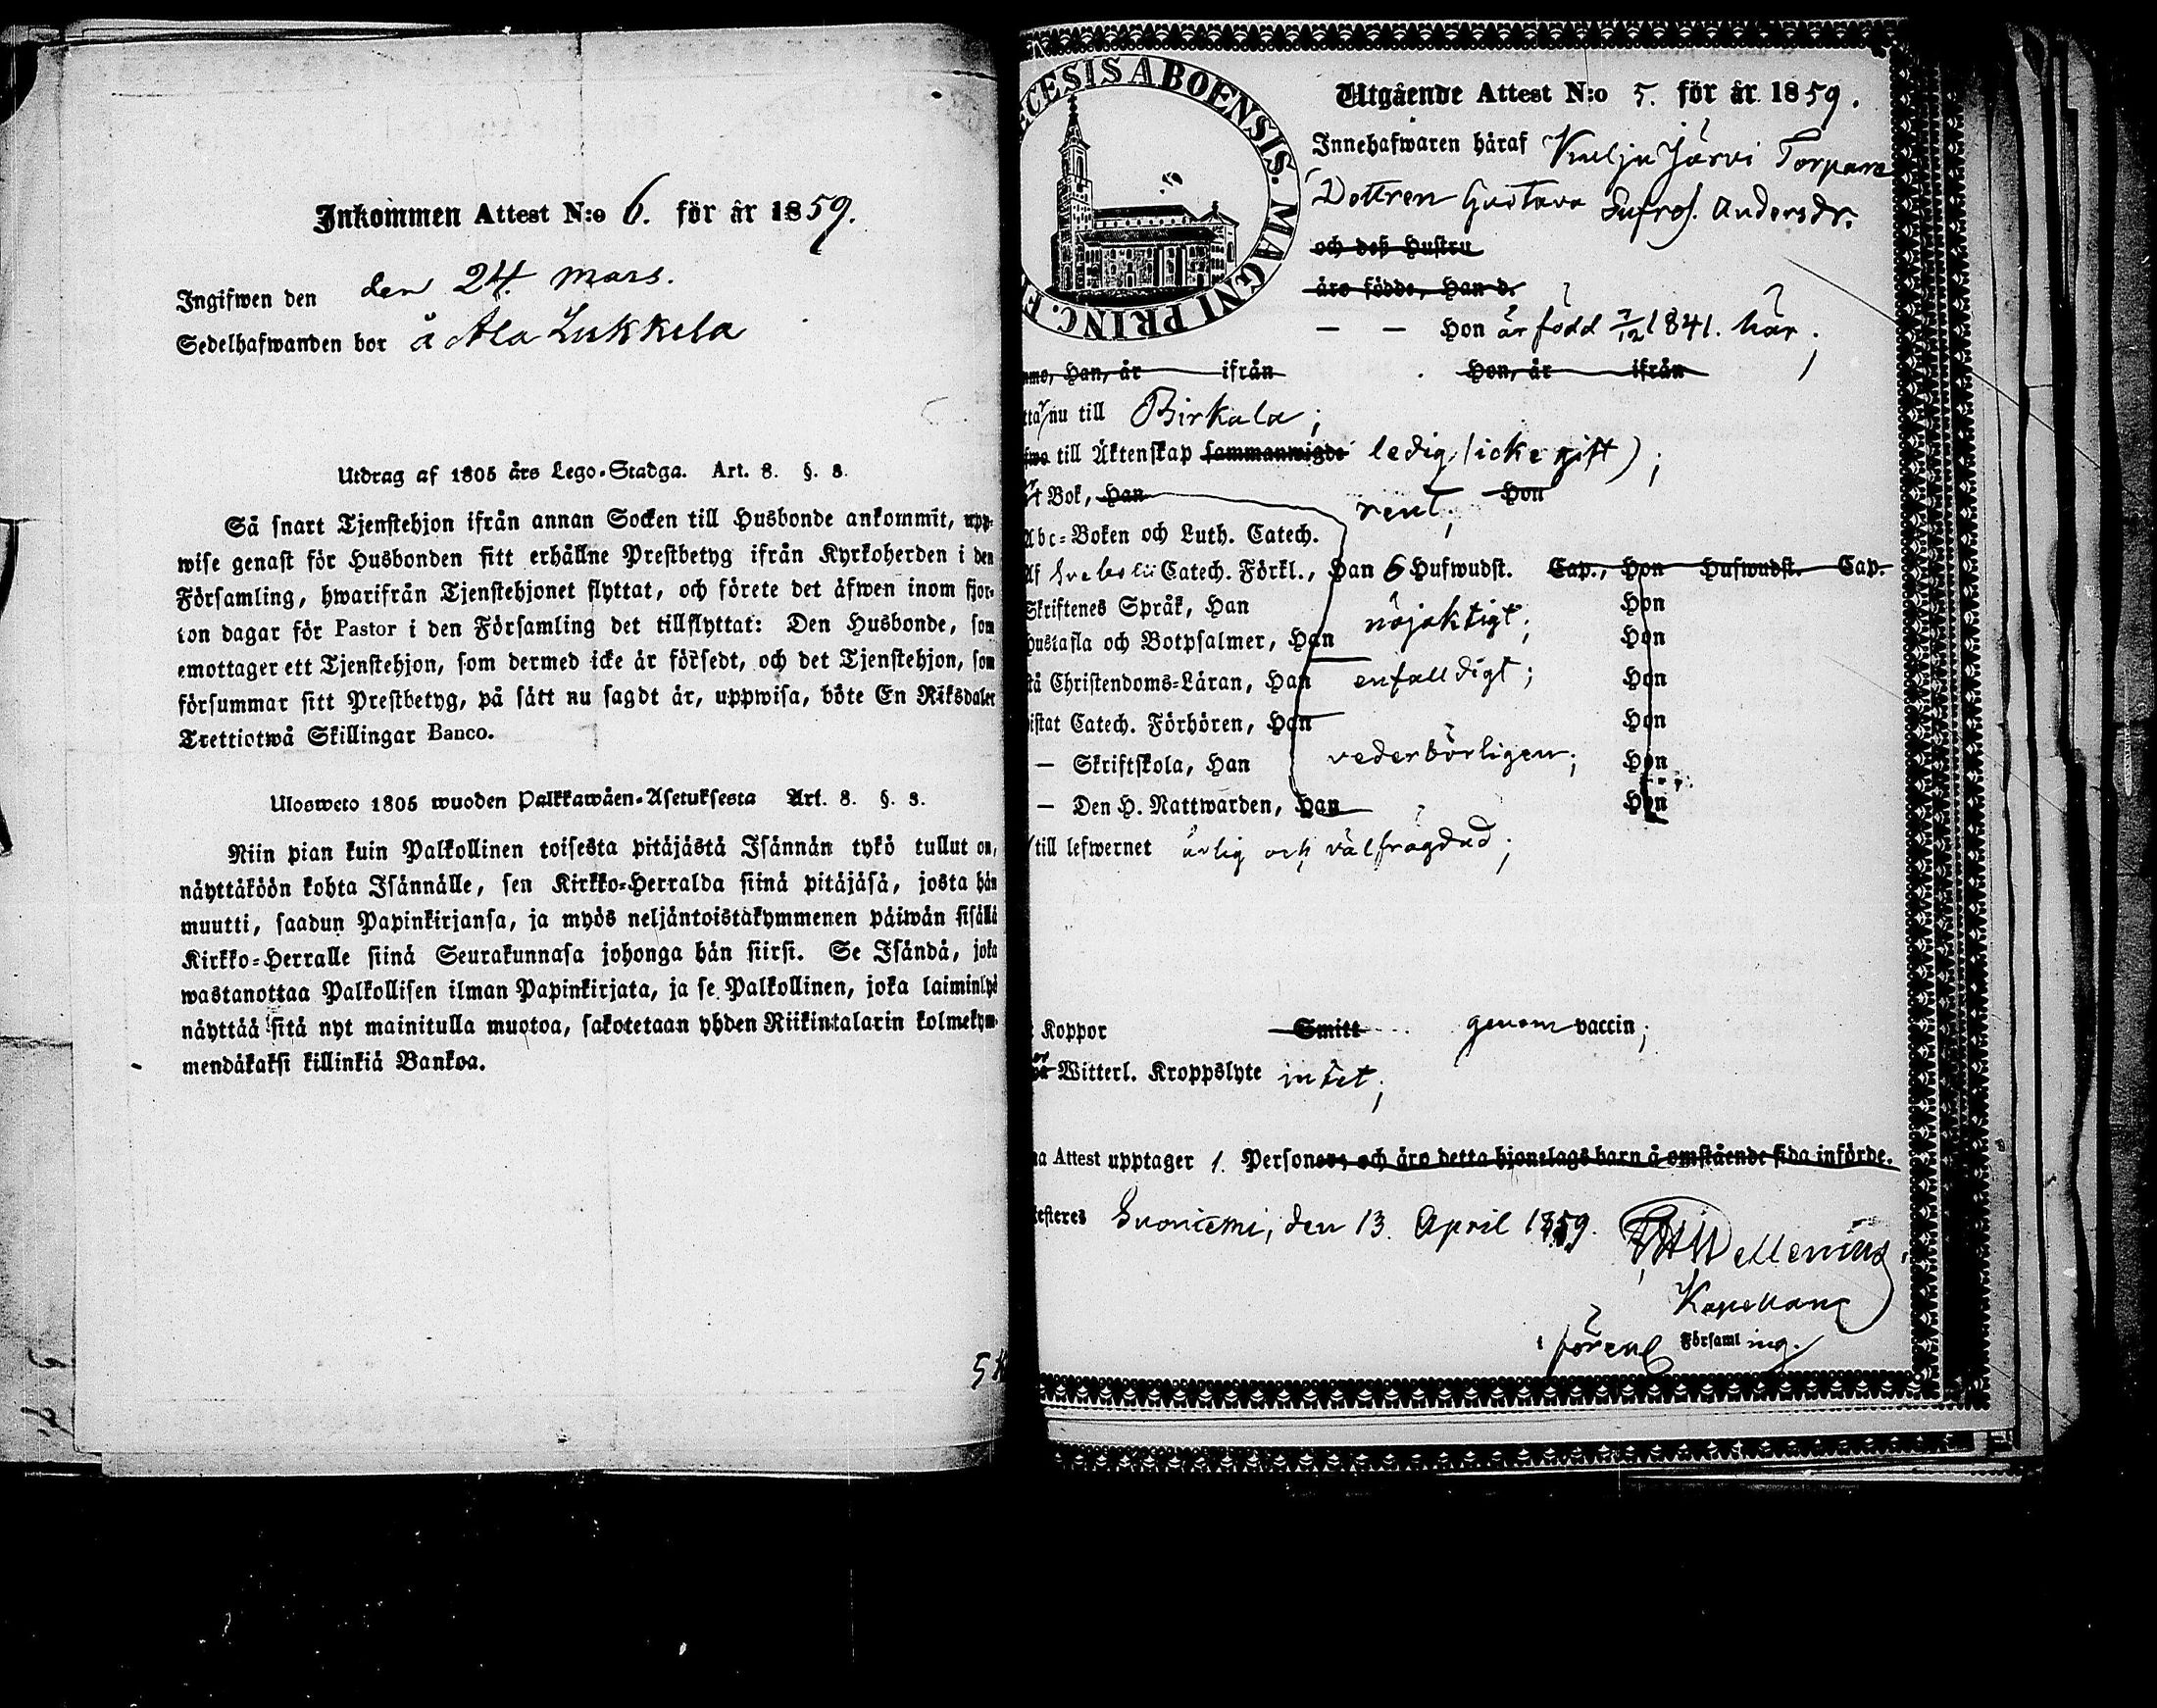 Inkommen Attest N:o 6. för år 1859.
Ingifwen den den 24 mars.
Sedelhafwanden bor å Ala Lukkila
Utdrag af 1805 års Lego-Stadga. Art. 8. §. 3.
Så snart Tjenstehjon ifrån annan Socken till Husbonde ankommit, upp-
wise genast för Husbonden sitt erhållne Prestbetyg ifrån Kyrkoherden i den
Församling, hwarifrån Tjenstehjonet flyttat, och förete det äfwen inom fjor-
ton dagar för Pastor i den Församling det tillflyttat: Den Husbonde, som
emottager ett Tjenstehjon, som dermed icke är försedt, och det Tjenstehjon, som
försummar sitt Prestbetyg, på sätt nu sagdt är, uppwisa, böte En Riksdaler
Trettiotwå Skillingar Banco.
Ulosweto 1805 wuoden Palkkawäen-Asetuksesta Art. 8. §. 3.
Niin pian kuin Palkollinen toisesta pitäjästä Isännän tykö tullut on,
näyttäköön kohta Isännälle, sen Kirkko-Herralda siinä pitäjäsä, josta hän
muutti, saadun Papinkirjansa, ja myös neljäntoistakymmenen päiwän sisällä
Kirkko-Herralle siinä Seurakunnasa johonga hän siirsi. Se Isändä, joka
wastanottaa Palkollisen ilman Papinkirjata, ja se Palkollinen, joka laiminlyö
näyttää sitä nyt mainitulla muotoa, sakotetaan yhden Riikintalarin kolmekym-
mendäkaksi killinkiä Bankoa.
ECESIS ABOENSIS. MAGNI PRINC. F
Utgående Attest N:o 5. för år 1859.
Innehafwaren häraf Kuljujärvi Torpare
Dottren Gustava Eufros. Andersdr.
och deß Hustru
äro födde, Han d.
— — Hon är född 7/12 1841. här;
Han, är ifrån Hon, är ifrån
nu till Birkala;
till Äktenskap sammanwigde ledig (icke gift);
t Bok, Han rent; Hon
Abc-Boken och Luth. Catech.
Af Svebelii Catech. Förkl., Han 6 Hufwudst. Cap., Hon Hufwudst. Cap.
Skriftenes Språk, Han nöjaktigt; Hon
Hustafla och Botpsalmer, Han Hon
tå Christendoms-Läran, Han enfalldigt; Hon
istat Catech. Förhören, Han Hon
— Skriftskola, Han vederbörligen; Hon
— Den H. Nattwarden, Han Hon
till lefwernet ärlig och välfrägdad;
Koppor Smitt genom vaccin;
Witterl. Kroppslyte intet;
na Attest upptager 1. Personer, och äro detta hjonelags barn å omstående sida införde.
testeres Suoniemi, den 13. April 1859.
Wellenius,
Kapellans
i förent Församling.